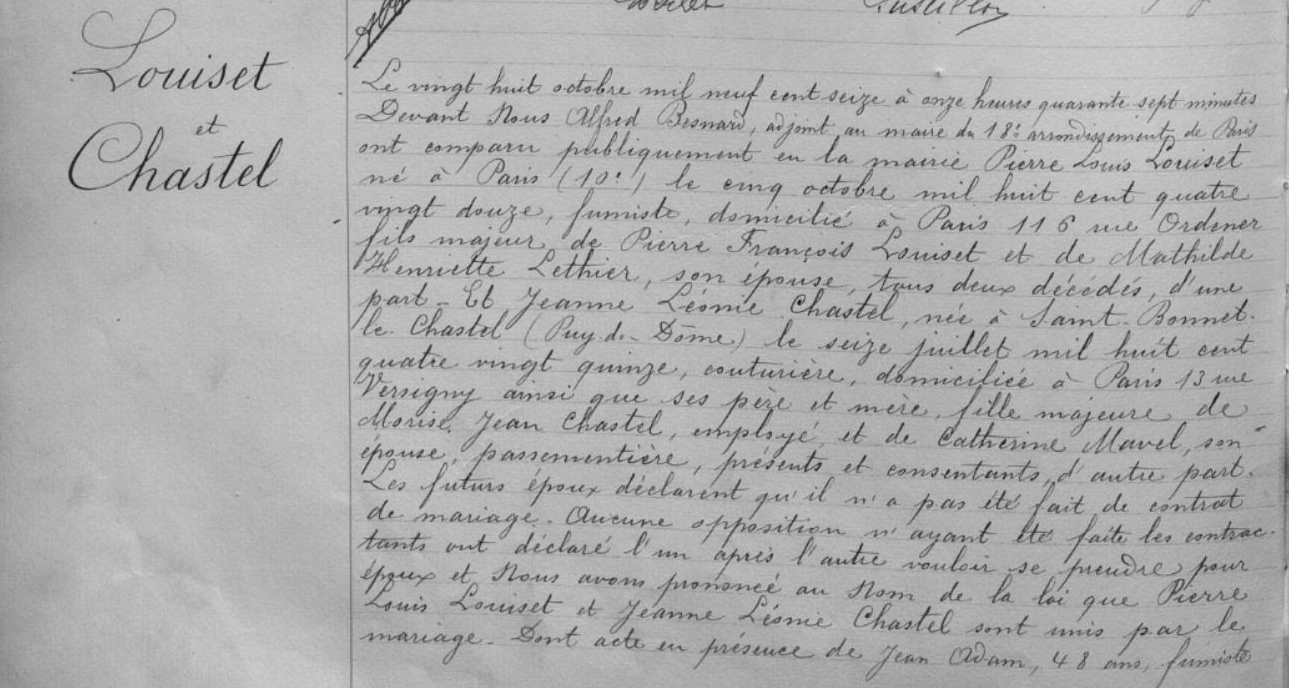 Louiset
et
Chastel
Le vingt huit octobre mil neuf cent seize à onze heures quarante sept minutes
Devant Nous Alfred Besnard, adjoint au maire du 18e arrondissement de Paris
ont comparu publiquement en la mairie Pierre Louis Louiset
né à Paris (10e) le cinq octobre mil huit cent quatre
vingt douze, fumiste, domicilié à Paris 116 rue Ordener
fils majeur de Pierre François Louiset et de Mathilde
Henriette Lethier, son épouse, tous deux décédés, d'une
part _ Et Jeanne Léonie Chastel, née à Saint-Bonnet-
le-Chastel (Puy-de-Dôme) le seize juillet mil huit cent
quatre vingt quinze, couturière, domiciliée à Paris 13 rue
Versigny ainsi que ses père et mère, fille majeure de
Morise Jean Chastel, employé, et de Catherine Mavel, son
épouse, passementière, présents et consentants, d'autre part.
Les futurs époux déclarent qu'il n'a pas été fait de contrat
de mariage. Aucune opposition n'ayant été faite les contrac-
tants ont déclaré l'un après l'autre vouloir se prendre pour
époux et Nous avons prononcé au Nom de la loi que Pierre
Louis Louiset et Jeanne Léonie Chastel sont unis par le
mariage _ Dont acte en présence de Jean Adam, 48 ans, fumiste